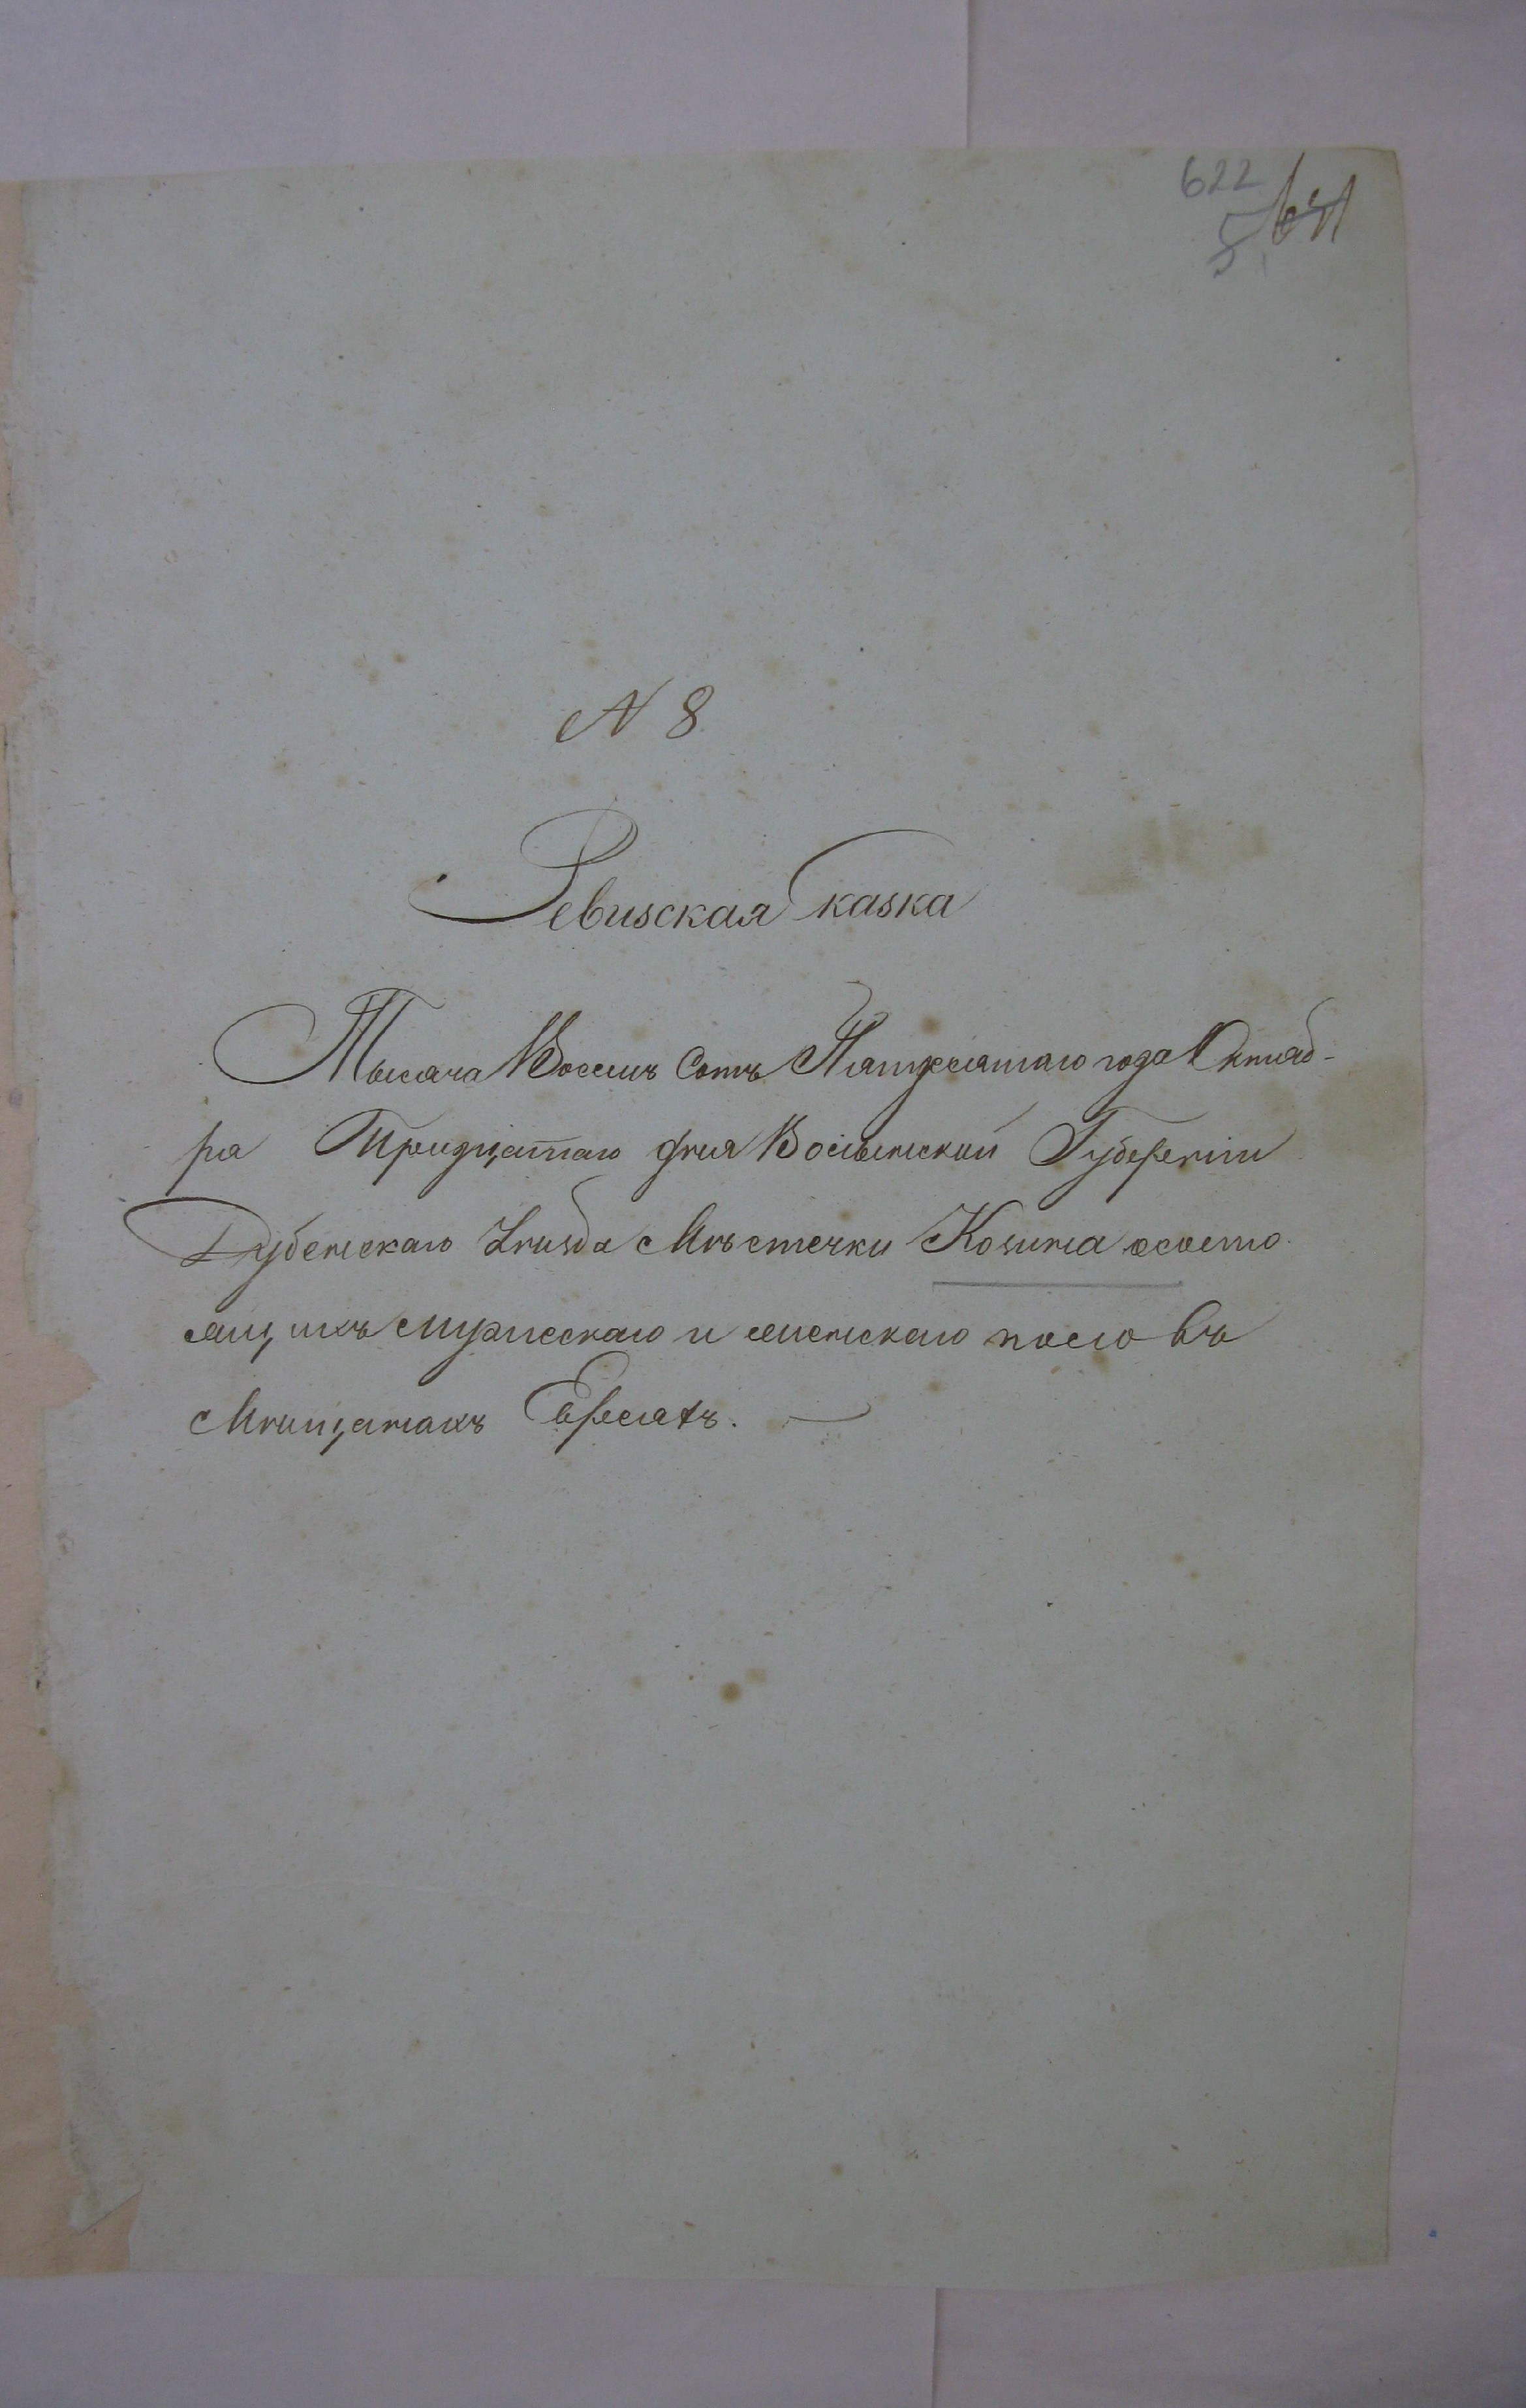 622
N 8
Ревиская Сказка
Тысяча Восемь Сотъ Пятдесятаго года Октяб-
ря Тридцатаго дня Волынской Губерніи
Дубенскаго Уѣзда Мѣстечки Козина о состо
ящихъ мужескаго и женскаго пола въ
Мѣщанахъ Евреяхъ.